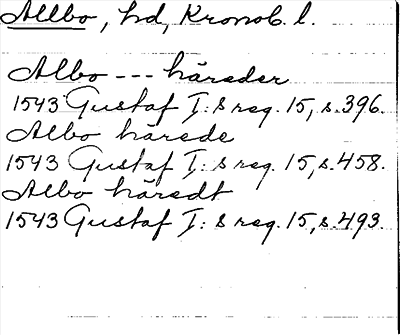 Allbo, hd, Kronob. l.
Albo --- häreder
1543 Gustaf I: s reg. 15, s. 396.
Albo härede
1543 Gustaf I: s reg. 15, s. 458.
Albo häredt
1543 Gustaf I: s reg. 15, s. 493.